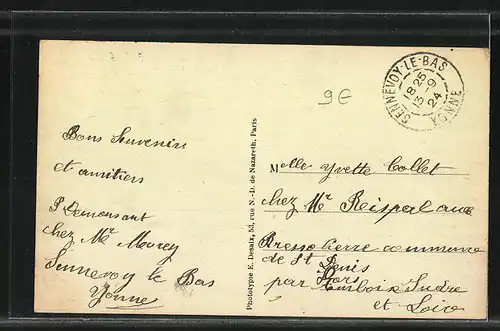 9€
SENNEVOY-LE-BAS
18 25
13 -9
24
YONNE
Bons Souvenirs
et amitiers
P Demonsant
chez Mr Maurey
Sennevoy le Bas
Yonne
Phototype E. Desaix, 53, rue N.-D. de Nazareth, Paris
Melle Yvette Collet
chez Mr Reisperl aux
Pierre commune
de St Denis
Hors
par Amboise Indre
et Loire